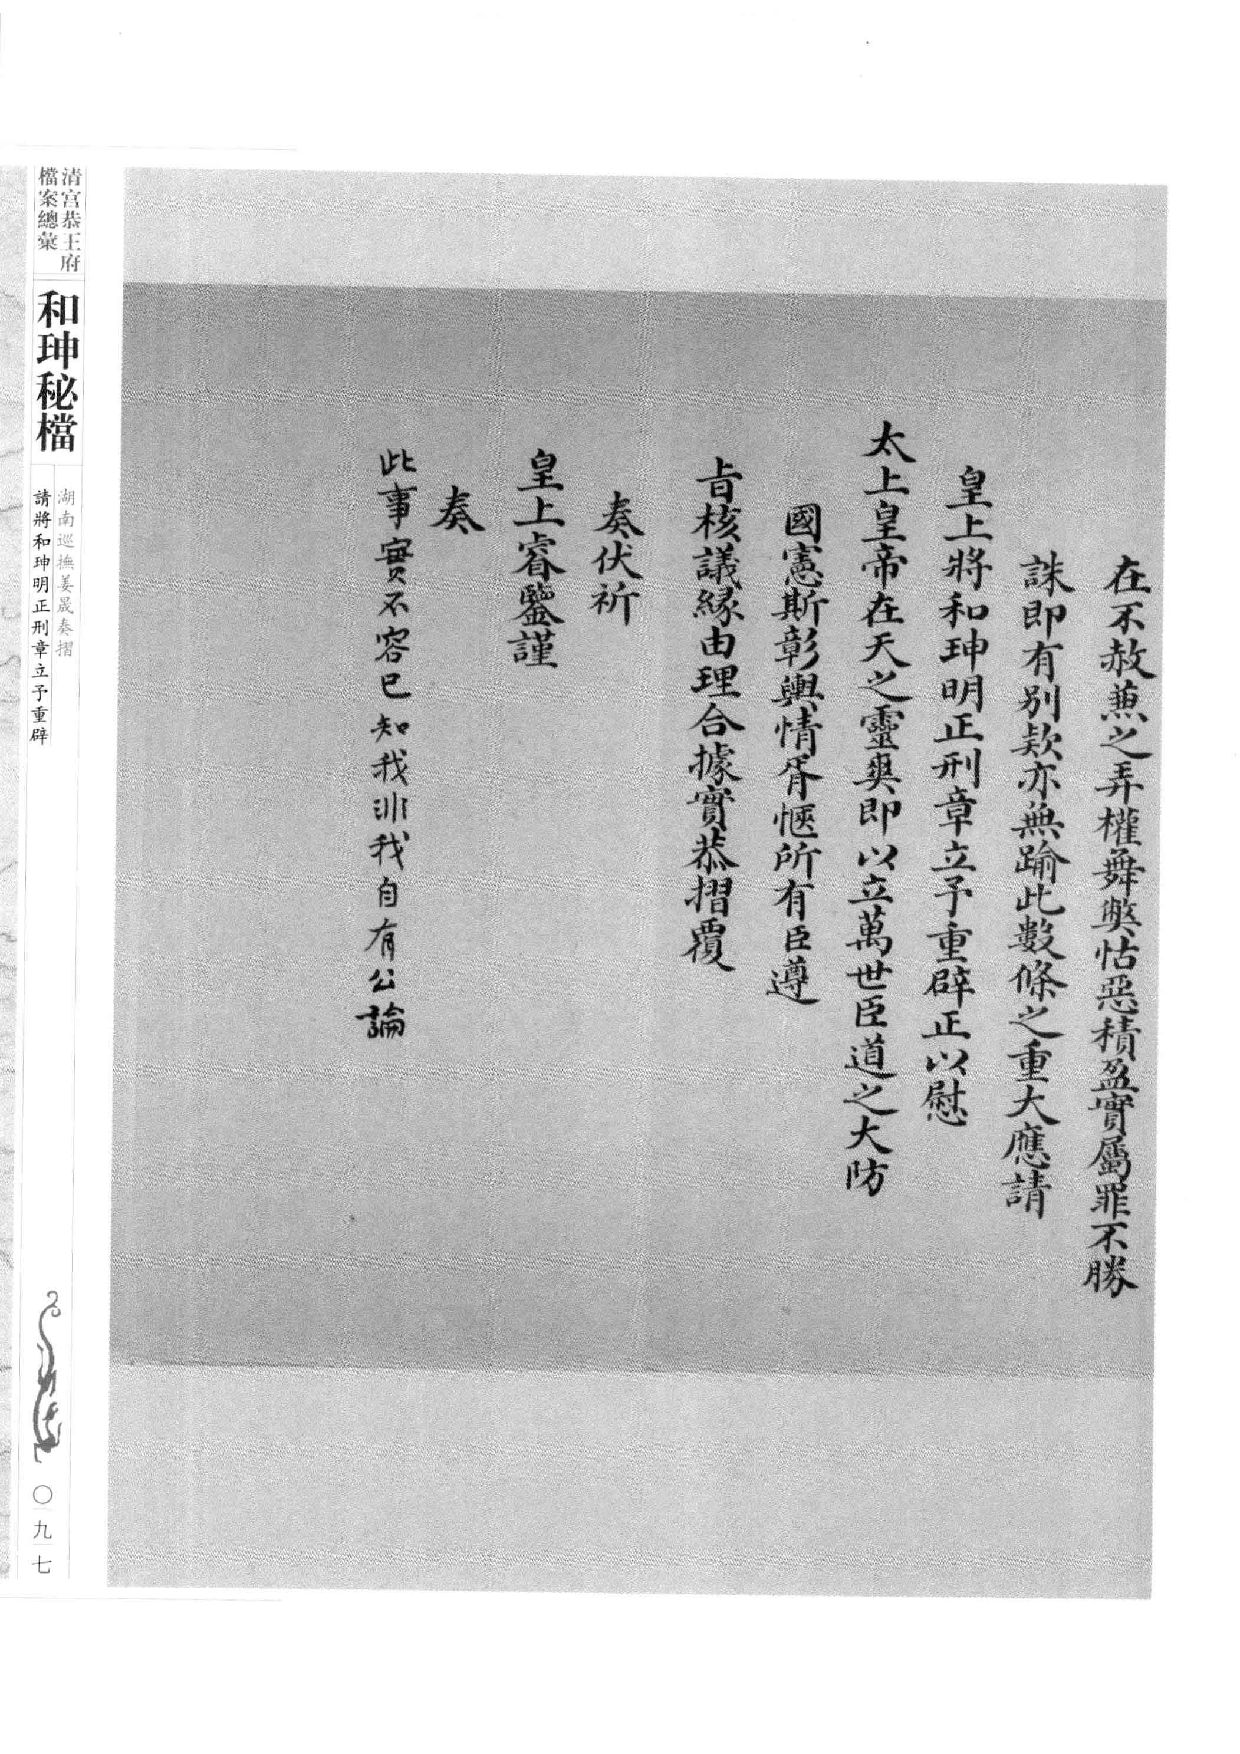 在不赦兼之弄權舞弊怙惡積盈實屬罪不勝
誅即有別款亦無踰此數條之重大應請
皇上將和珅明正刑章立予重辟正以慰
太上皇帝在天之靈爽即以立萬世臣道之大防
國憲斯彰輿情胥愜所有臣遵
旨核議緣由理合據實恭摺覆
奏伏祈
皇上睿鑒謹
奏
此事實不容已知我非我自有公論
清宮恭王府
檔案總彙
和珅秘檔
湖南巡撫姜晟奏摺
請將和珅明正刑章立予重辟
〇九七